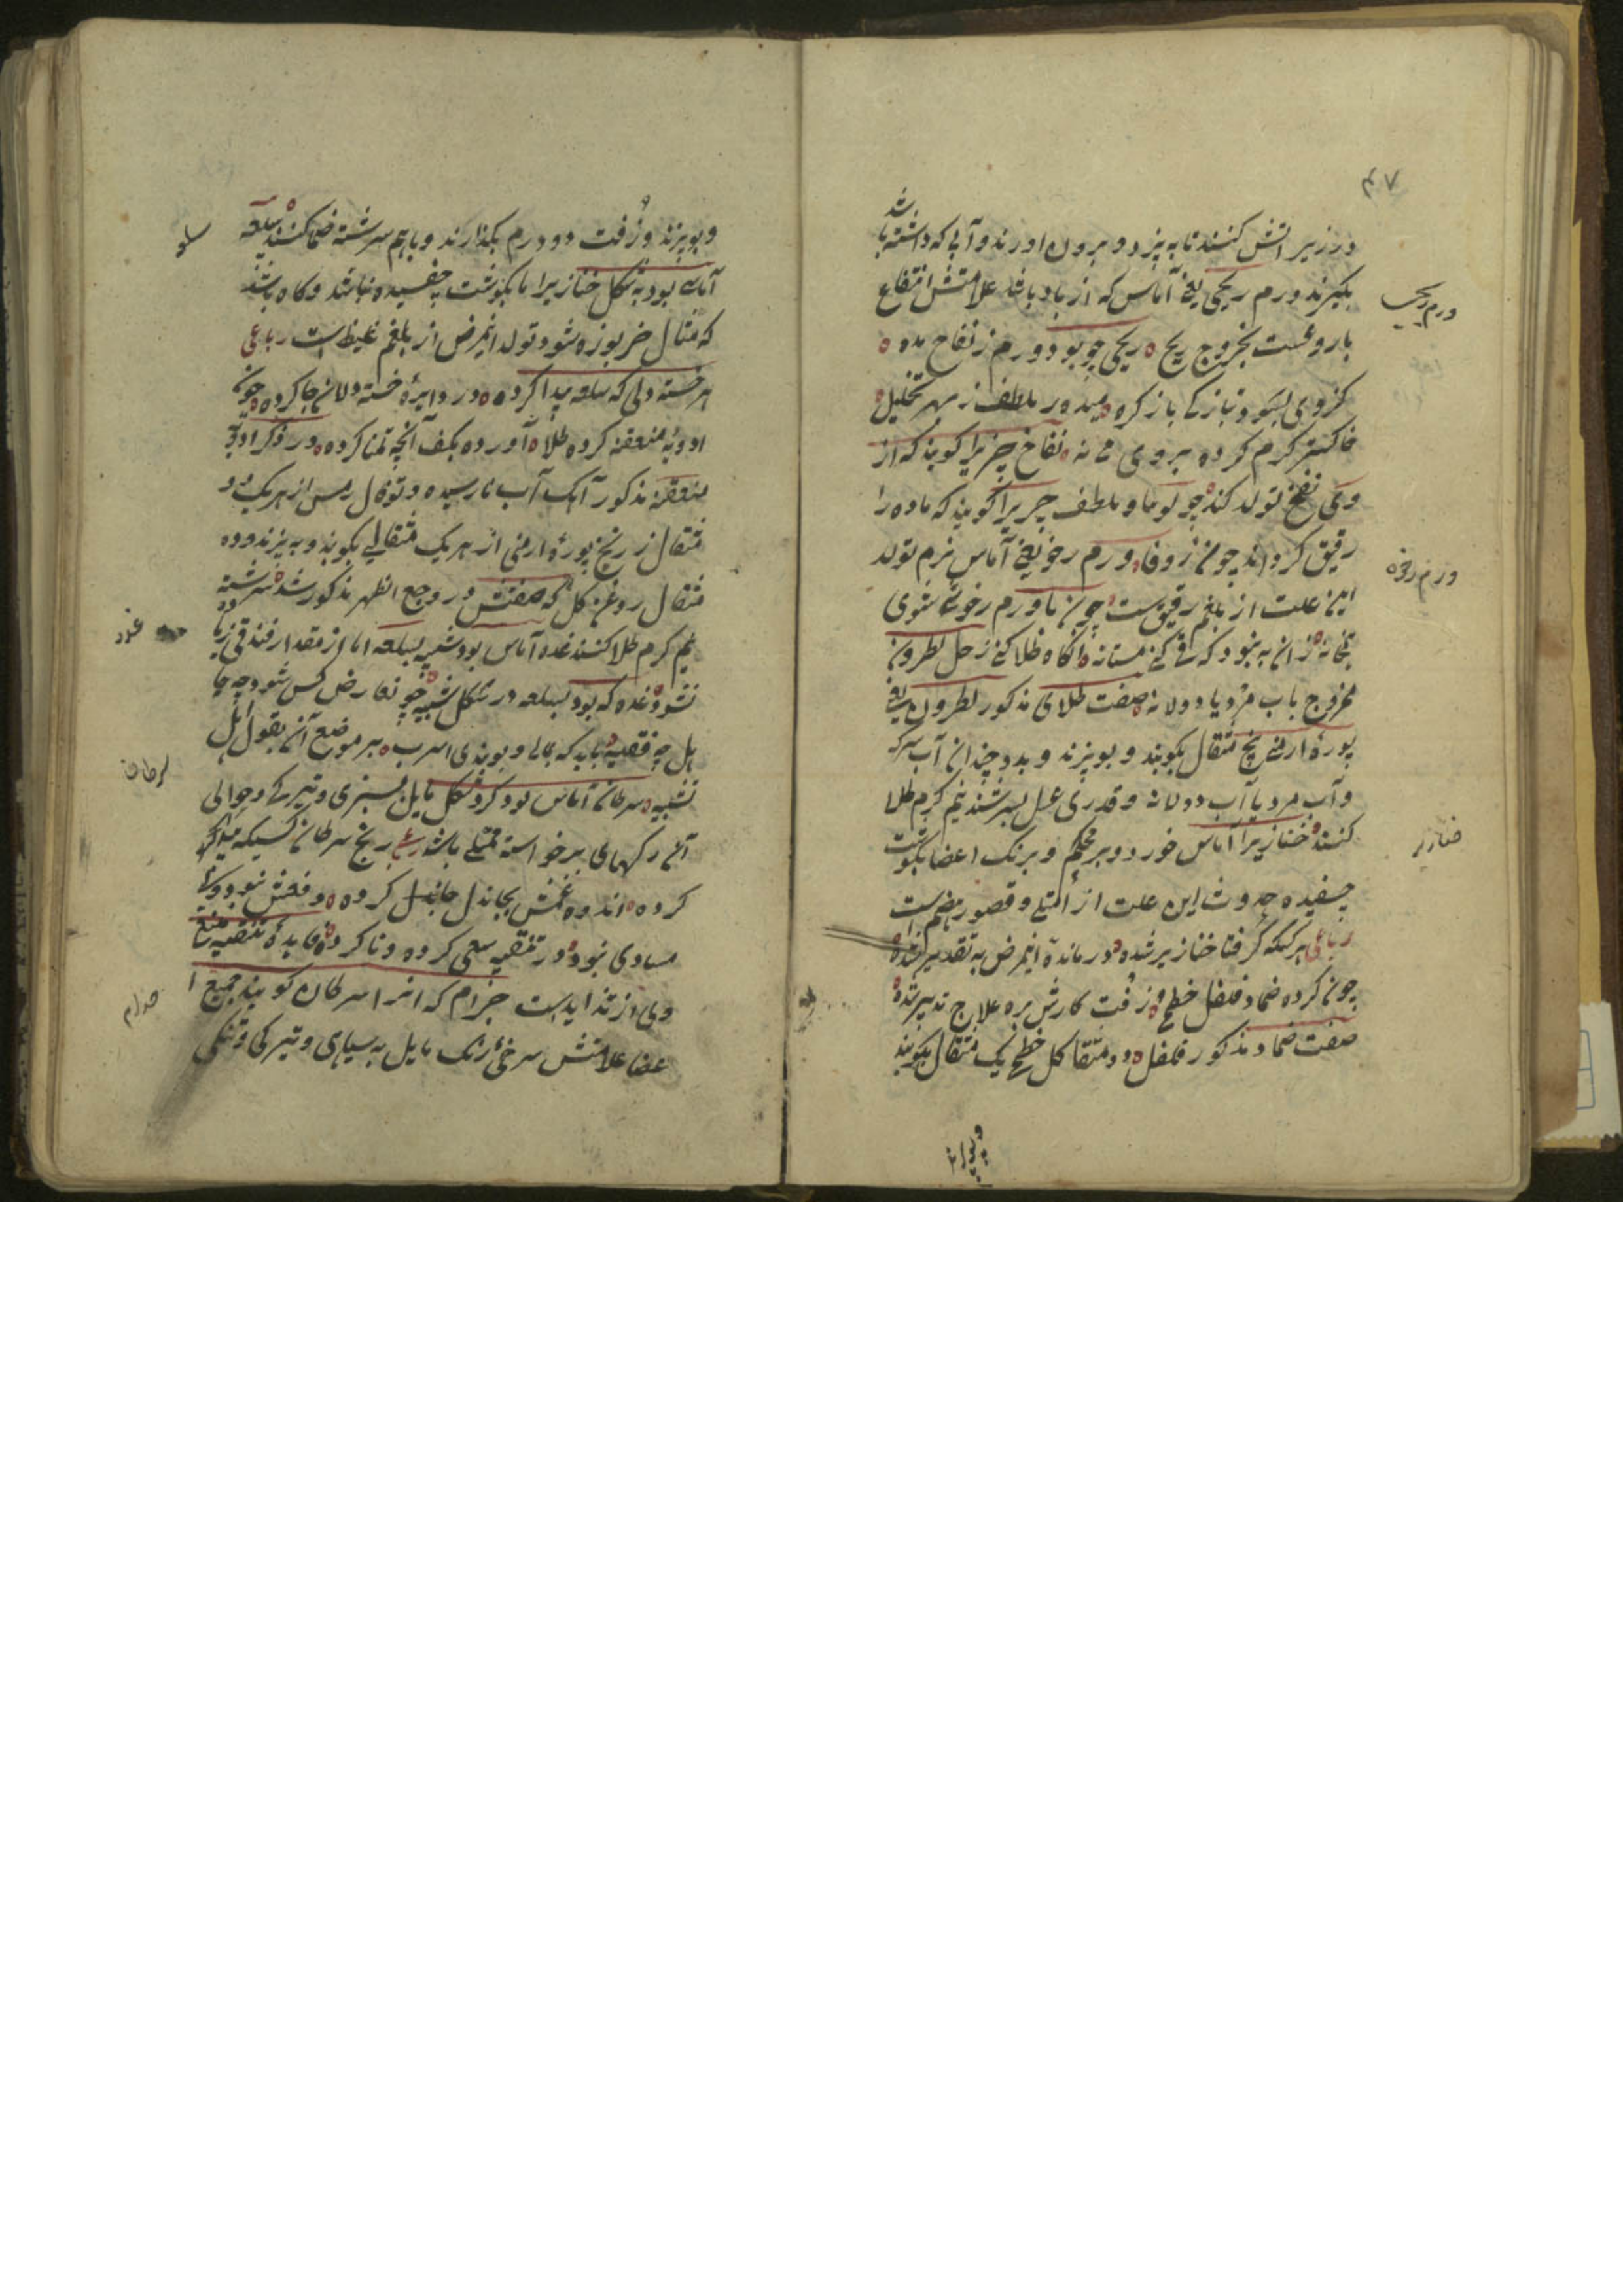 ۴۷
در زیر آتش کنند تا به پزد و بیرون آورند و آبی که داشته باشد
بگیرند ورم ریحی یعنی آماس که از باد باشد علامتش انتفاخ
ورم ریحی
باروغست بخروج ریح ریحی چو بود ورم ز نفاخ مده
کز وی بشود تبازکی باز کره میدور ملطف ز مهر تحلیل
خاکستر گرم کرده بر وی می نه نفاخ چیزیرا گویند که از
وی نفخ تولد کند چو لوبیا و ملطف چیزیرا گویند که ماده را
رقیق گرداند چون زوفا ورم رخو یعنی آماس نرم تولد
ورم رخوه
این علت از بلغم رقیق ست چون با ورم رخوت شوی
همخانه زان به نبود که قی کنی مستانه آنگاه طلا کنی ز حل نطرون
ممزوج باب مرد یا دولانه صفت طلای مذکور نطرون یعنی
بورهٔ ارمنی پنج مثقال بکوبند و بوپزند و بدو چندان آب سرکه
و آب مرد یا آب دولانه و قدری عسل بسرشند نیم گرم طلا
کنند خنازیر آماس خورد و بر محکم و برنک اعضا بگوشت
خنازیر
چسفیده حدوث این علت از امتلی و قصور هضم است
رباعی هر کسکه گرفتار خنازیر شده درماندهٔ اینمرض به تقدیر شده
چون کرده ضماد فلفل خطمی و زفت کارش بره علاج تدبیر شده
صفت ضماد مذکور فلفل دو مثقال گل خطمی یک مثقال بکوبند
و بوپزند
و بوپزند و زفت دو درم بکدازند و باهم سرشته ضماد کنند سلعه
سلعه
آماسی بود به شکل خنازیر اما بگوشت چفسیده نباشد و گاه باشد
که مثال خربوزه شود تولد اینمرض از بلغم غلیظ است رباعی
هر خسته دلی که سلعه پیدا کرده در دایرهٔ خسته دلان جا کرده چون
ادویهٔ متعفنه کرده طلا آورده بکف آنچه تمنا کرده در ذکر ادویهٔ
متعفنه مذکور آهک آب نارسیده و توفال مس از هر یک دو
مثقال زرنیخ بورهٔ ارمنی از هر یک مثقالی بکوبند و به پزند و ده
مثقال روغن گل که صفتش در وجع الظهر مذکور شد سرشته
نیم گرم طلا کنند غده آماس بود شبیه بسلعه اما از مقدار فندقی زیاده
غدد
نشود غده که بود بسلعه در شکل شبیه چو عارض کس شود چه جا
هل چه فقیه باید که بمالی و ببندی اسرب بر موضع آن بقول اهل
تشبیه سرطان آماس بود گرد شکل مایل بسبزی و تیرگی و حوالی
سرطان
آن رگهای برخواسته ممتلی باشد رباعی رنج سرطان کسیکه میدا کرد
کرده اندوه غمش بجاندل جا کرده دفعش نبود
مساوی نبود در تنقیه سعی کرده و ناکرده فایدهٔ تنقیه منع
وی از تزاید است جذام که انرا سرطان گویند جمیع ا
جذام
عضا علامتش سرخی رنک مایل به سیاهی و تیرگی و تنگی